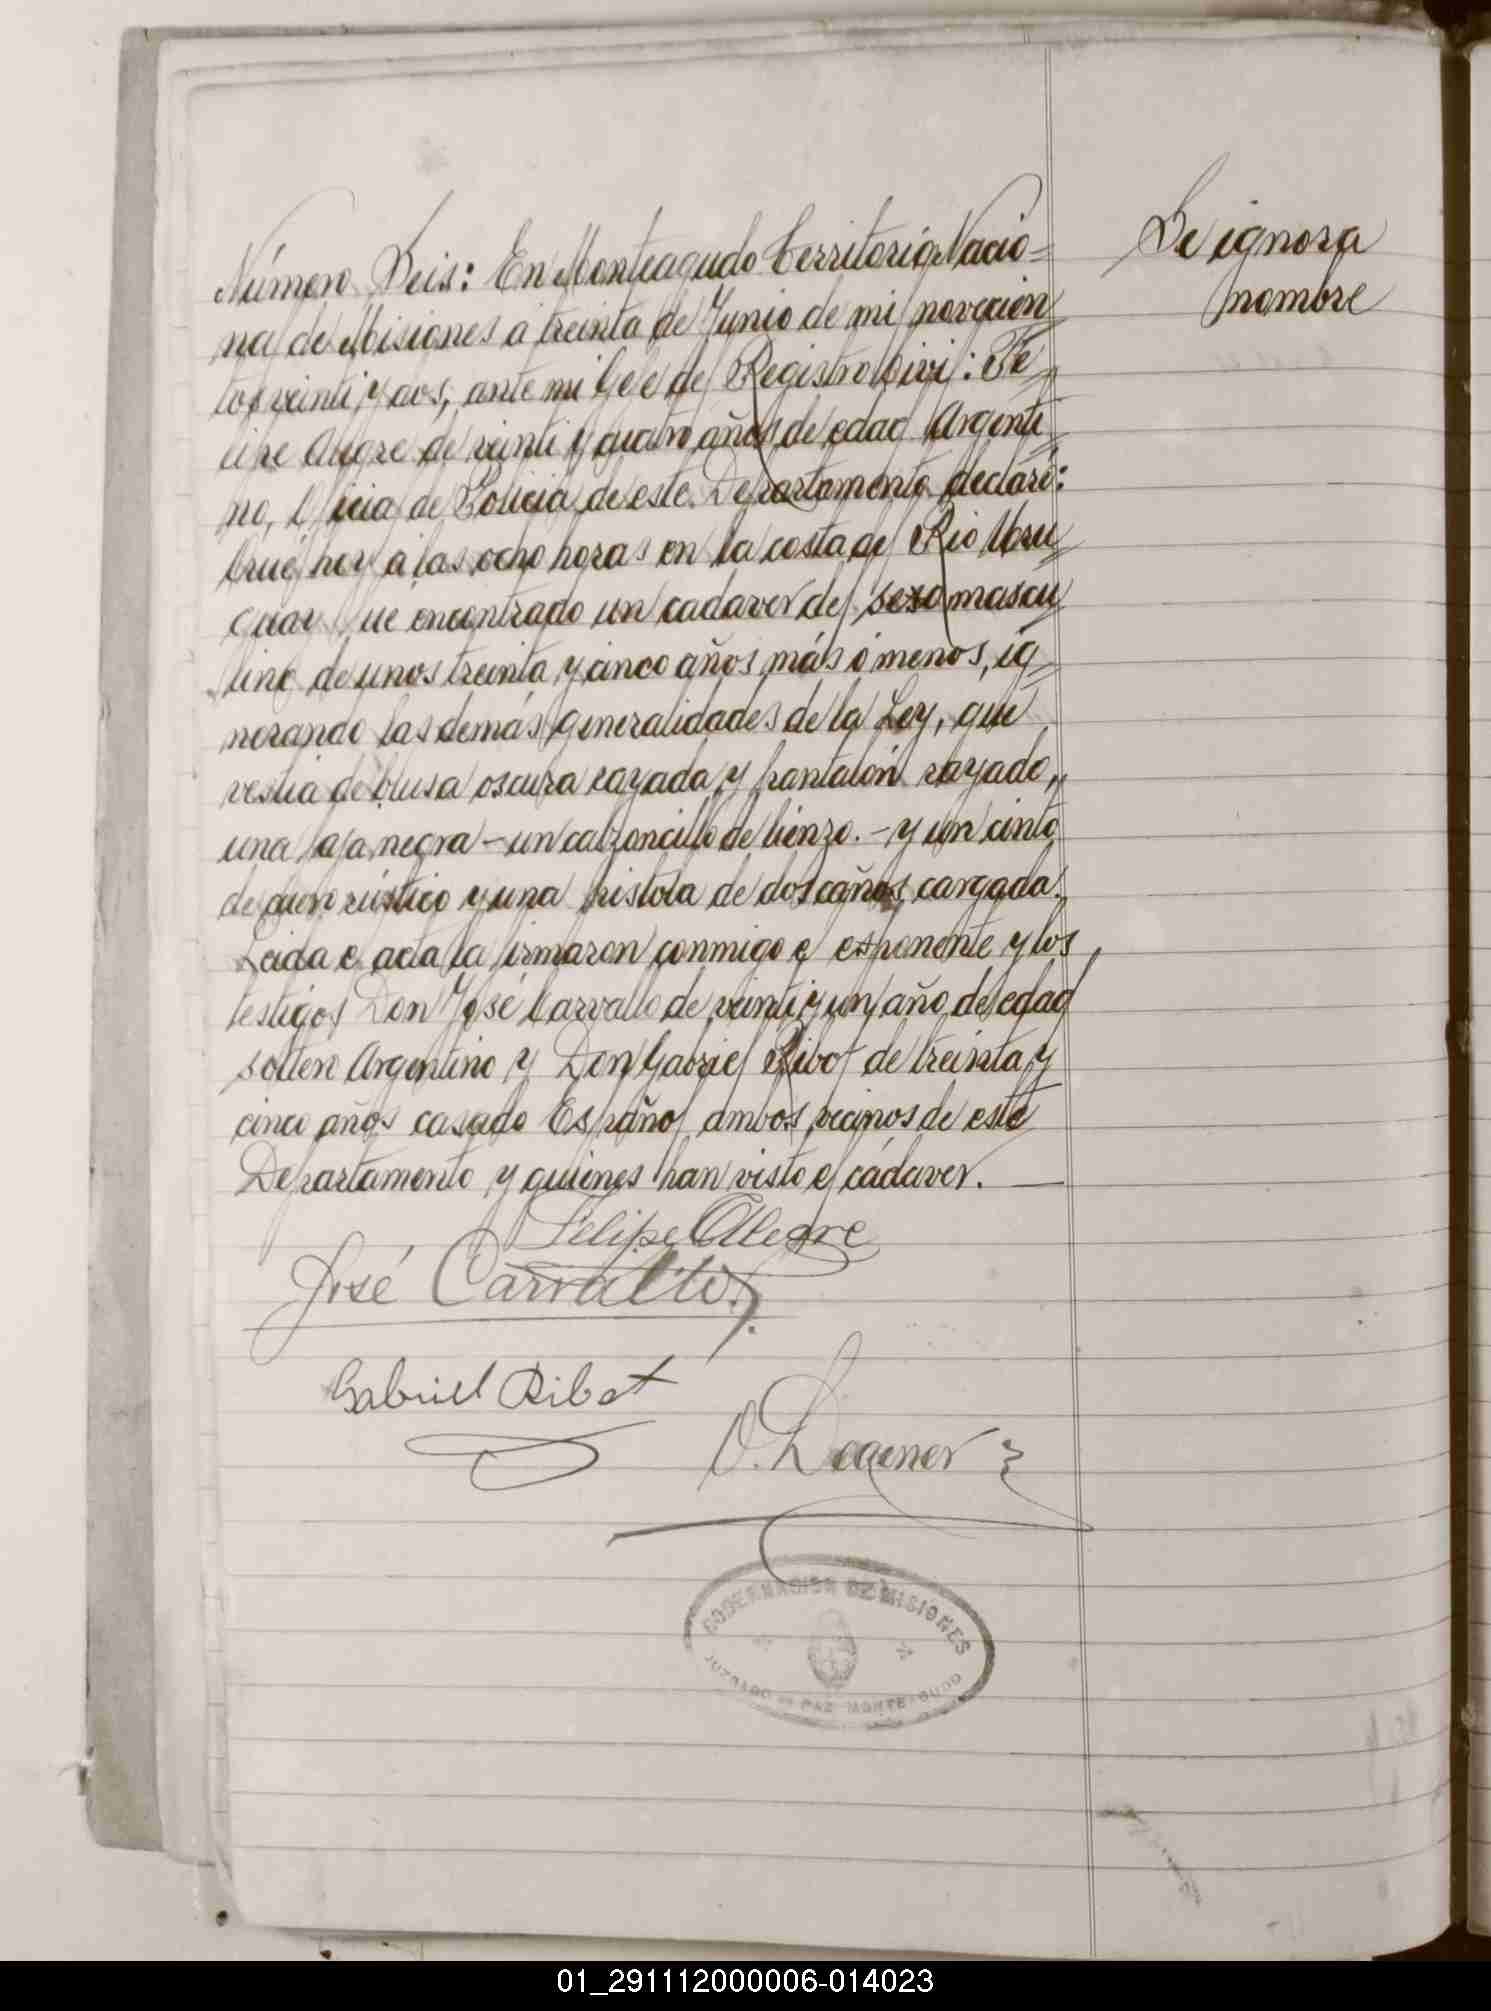 Se ignora
nombre
Número Seis: En Monteagudo Territorio Nacio=
nal de Misiones a treinta de Junio de mil novecien
tos veinti y dos, ante mi Gefe del Registro Civil: Fe=
lipe Alegre de veinti y cuatro años de edad Argenti
no, Oficial de Policia de este Departamento declaró:
Que hoy á las ocho horas en la costa del Rio Uru
guay fué encontrado un cadaver del sexo mascu
lino de unos treinta y cinco años más ó menos, ig=
norando las demás generalidades de la Ley, que
vestia de blusa oscura rayada y pantalón rayado,
una faja negra - un calzoncillo de lienzo. - y un cinto
de cuero rústico y una pistola de dos caños cargada.
Leida el acta la firmaron conmigo el esponente y los
testigos Don José Carvallo de veinti y un año de edad
soltero Argentino y Don Gabriel Ribot de treinta y
cinco años casado Español ambos vecinos de este
Departamento y quienes han visto el cádaver. —
Felipe Alegre
José Carvallo.
Gabriel Ribot
GOBERNACION DE MISIONES
JUZGADO DE PAZ MONTEAGUDO
01_291112000006-014023